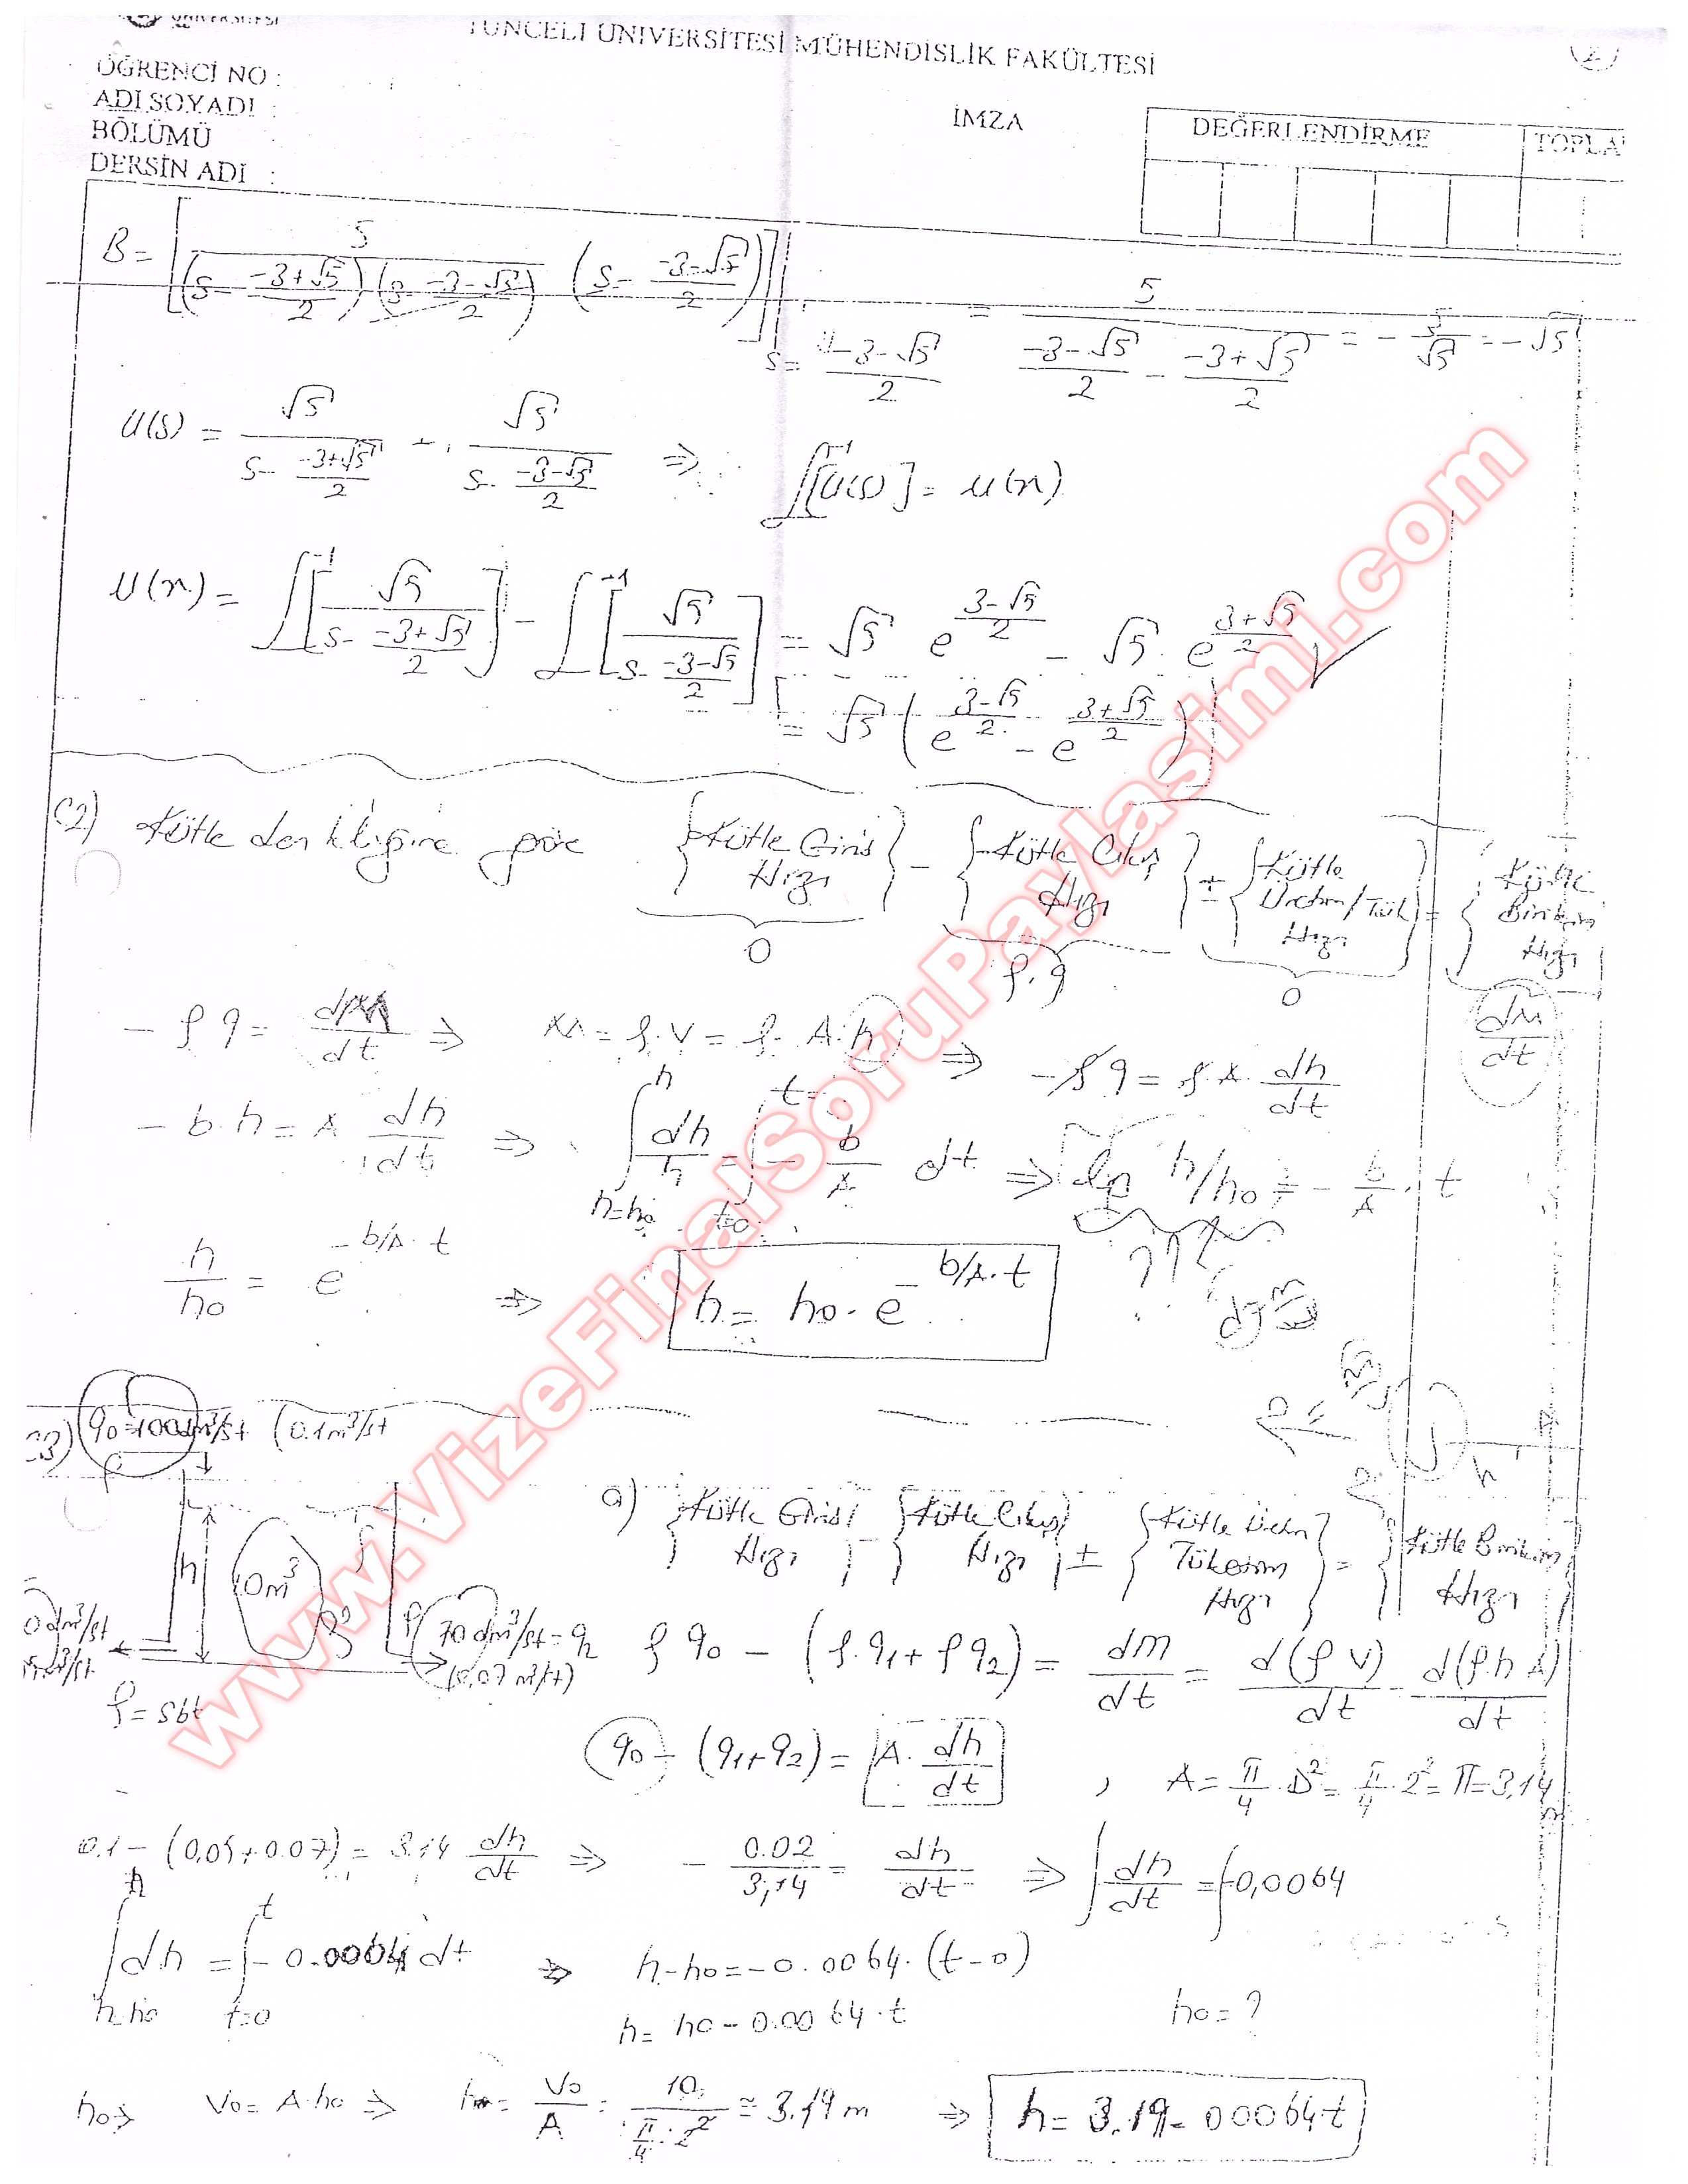 ÜNİVERSİTESİ
TUNCELİ ÜNİVERSİTESİ MÜHENDİSLİK FAKÜLTESİ
(2)
ÖĞRENCİ NO :
ADI SOYADI :
BÖLÜMÜ
DERSİN ADI :
İMZA
DEĞERLENDİRME
TOPLA
B = [ 5 / ((s - (-3+√5)/2) (s - (-3-√5)/2)) (s - (-3-√5)/2) ] | s = (-3-√5)/2 = 5 / ((-3-√5)/2 - (-3+√5)/2) = - 5/√5 = -√5
U(s) = √5 / (s - (-3+√5)/2) - √5 / (s - (-3-√5)/2) ⇒ ℒ⁻¹[U(s)] = u(x)
U(x) = ℒ⁻¹[√5 / (s - (-3+√5)/2)] - ℒ⁻¹[√5 / (s - (-3-√5)/2)] = √5 e^((3-√5)/2) - √5 · e^((3+√5)/2)
= √5 (e^((3-√5)/2) - e^((3+√5)/2))
C2) Kütle denkliğine göre {Kütle Giriş Hızı} - {Kütle Çıkış Hızı} ± {Kütle Üretim/Tük Hızı} = {Kütle Birikim Hızı}
0 ρ.q 0 dM/dt
- ρ q = dM/dt ⇒ M = ρ.V = ρ. A.h ⇒ -ρ q = ρ.A. dh/dt
- b.h = A dh/dt ⇒ ∫_{h=h0}^{h} dh/h = ∫_{t=0}^{t} - b/A dt ⇒ ln h/h0 = - b/A . t
h/h0 = e^(-b/A.t) ⇒ h = h0 . e^(-b/A.t)
C3) q0 = 100dm³/st (0.1m³/st
h
10m³
0 dm³/st
70 dm³/st = q2
(0,07 m³/st)
ρ = sbt
a) {Kütle Giriş Hızı} - {Kütle Çıkış Hızı} ± {Kütle Üretim Tüketim Hızı} = {Kütle Birikim Hızı}
ρ q0 - (ρ.q1 + ρ q2) = dm/dt = d(ρ V)/dt d(ρ.h A)/dt
q0 - (q1+q2) = A. dh/dt , A = π/4 . D² = π/4 . 2² = π = 3,14
0.1 - (0,05+0.07) = 3.14 dh/dt ⇒ - 0.02/3,14 = dh/dt ⇒ ∫ dh/dt = ∫-0,0064
∫_{h=h0}^{h} dh = ∫_{t=0}^{t} - 0.0064 dt ⇒ h-h0 = -0.0064.(t-0)
h = h0 - 0.0064.t h0 = ?
h0 ⇒ V0 = A.h0 ⇒ h0 = V0/A = 10/(π/4 . 2²) ≅ 3.19 m ⇒ h = 3.19 - 0.0064.t
www.VizeFinalSoruPaylasimi.com